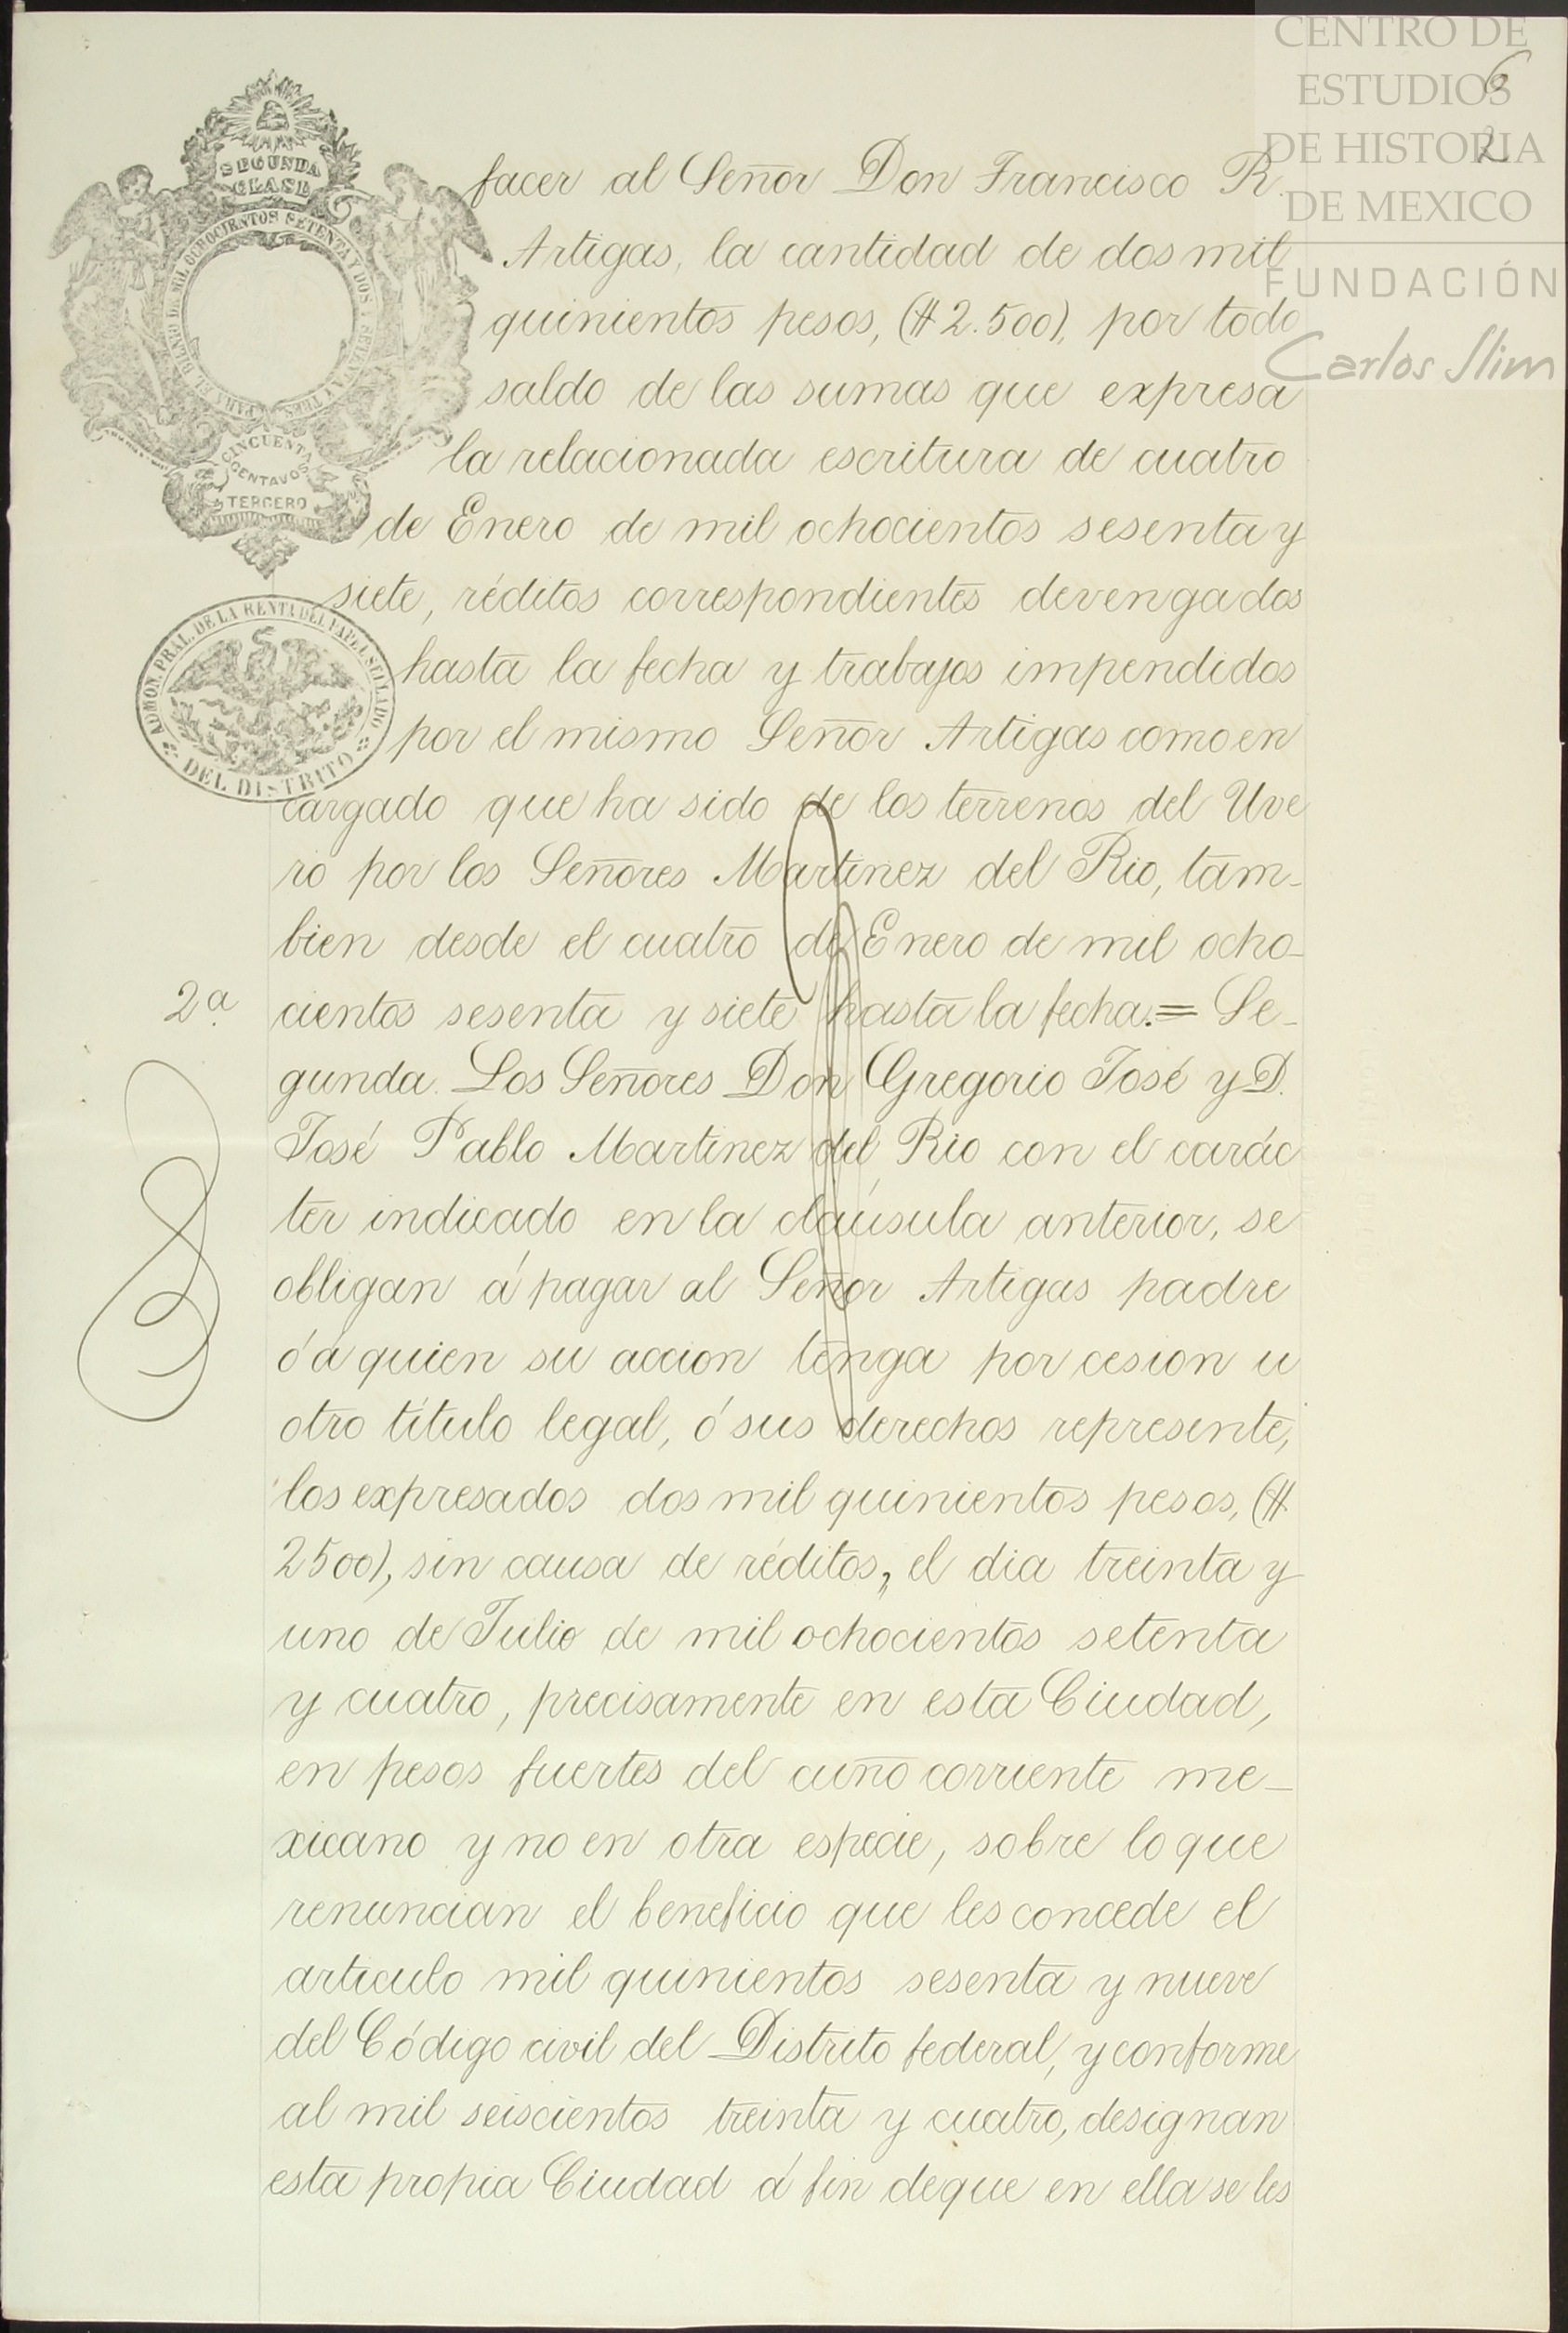 CENTRO DE
ESTUDIOS
DE HISTORIA
DE MEXICO
FUNDACIÓN
Carlos Slim
6
2
SEGUNDA
CLASE
PARA EL BIENIO DE MIL OCHOCIENTOS SETENTA Y DOS Y SETENTA Y TRES
CINCUENTA
CENTAVOS
TERCERO
ADMON. PRAL. DE LA RENTA DEL PAPEL SELLADO
DEL DISTRITO
facer al Señor Don Francisco R.
Artigas, la cantidad de dos mil
quinientos pesos, ($2.500), por todo
saldo de las sumas que expresa
la relacionada escritura de cuatro
de Enero de mil ochocientos sesenta y
siete, réditos correspondientes devengados
hasta la fecha y trabajos impendidos
por el mismo Señor Artigas como en
cargado que ha sido de los terrenos del Uve
ro por los Señores Martinez del Rio, tam-
bien desde el cuatro de Enero de mil ocho-
2ª cientos sesenta y siete hasta la fecha.= Se-
gunda. Los Señores Don Gregorio José y D.
José Pablo Martinez del Rio con el carác
ter indicado en la cláusula anterior, se
obligan á pagar al Señor Artigas padre
ó á quien su accion tenga por cesion u
otro título legal, ó sus derechos represente,
los expresados dos mil quinientos pesos, ($
2500), sin causa de réditos, el dia treinta y
uno de Julio de mil ochocientos setenta
y cuatro, precisamente en esta Ciudad,
en pesos fuertes del cuño corriente me-
xicano y no en otra especie, sobre lo que
renuncian el beneficio que les concede el
articulo mil quinientos sesenta y nueve
del Código civil del Distrito federal, y conforme
al mil seiscientos treinta y cuatro, designan
esta propia Ciudad á fin de que en ella se les